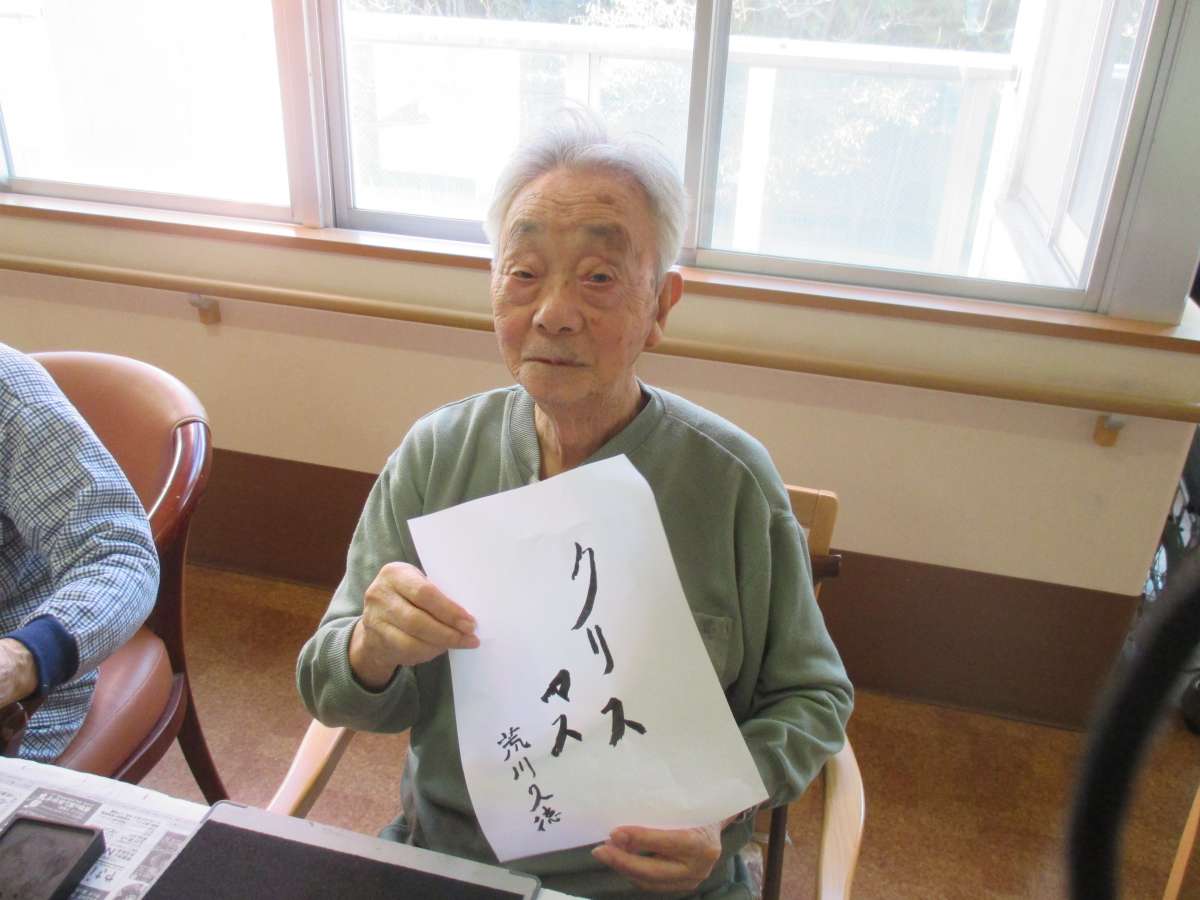 クリス
マス
荒川久徳